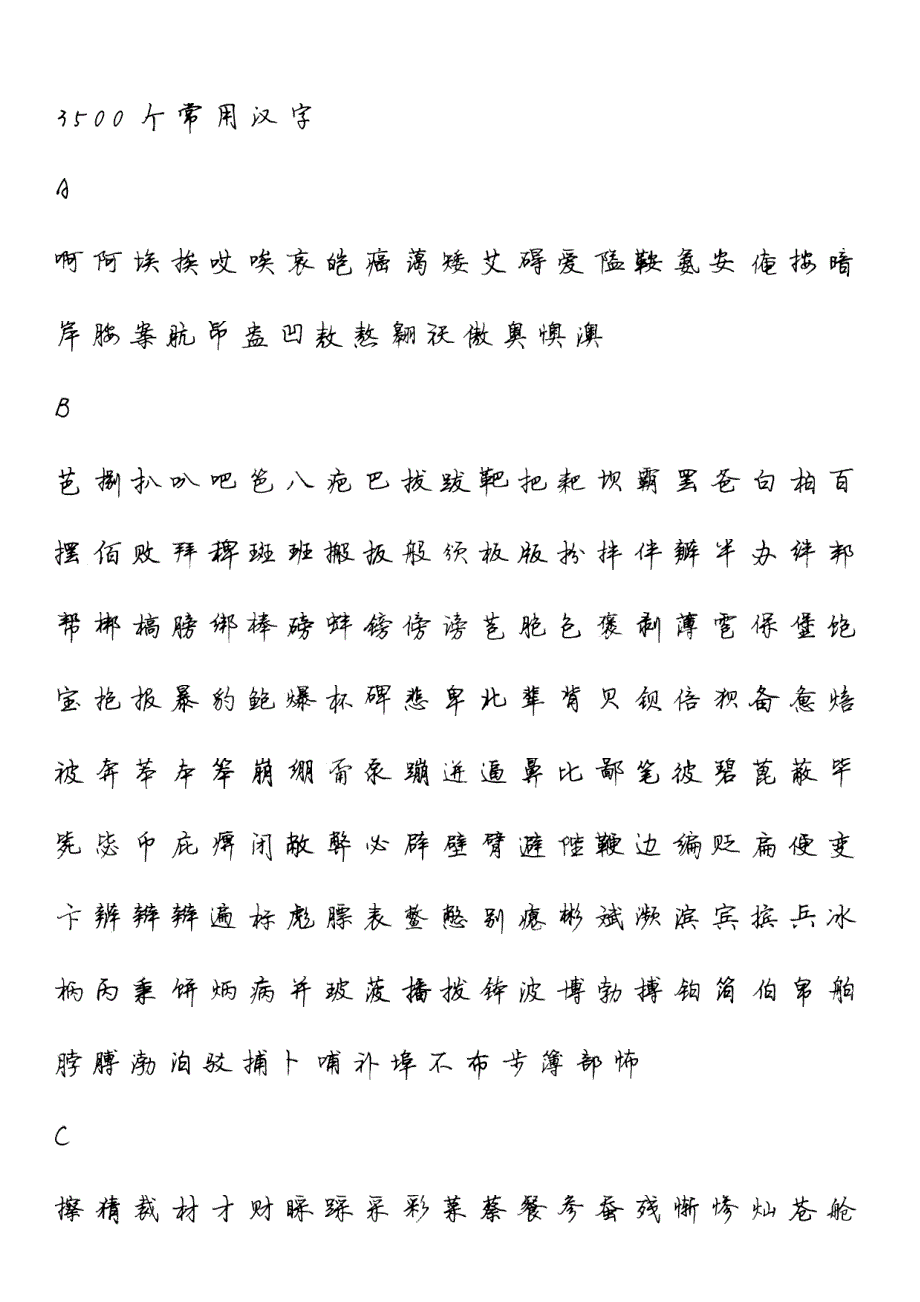 3500个常用汉字
A
啊阿埃挨哎唉哀皑癌蔼矮艾碍爱隘鞍氨安俺按暗
岸胺案肮昂盎凹敖熬翱袄傲奥懊澳
B
芭捌扒叭吧笆八疤巴拔跋靶把耙坝霸罢爸白柏百
摆佰败拜稗斑班搬扳般颁板版扮拌伴瓣半办绊邦
帮梆榜膀绑棒磅蚌镑傍谤苞胞包褒剥薄雹保堡饱
宝抱报暴豹鲍爆杯碑悲卑北辈背贝钡倍狈备惫焙
被奔苯本笨崩绷甭泵蹦迸逼鼻比鄙笔彼碧蓖蔽毕
毙毖币庇痹闭敝弊必辟壁臂避陛鞭边编贬扁便变
卞辨辩辫遍标彪膘表鳖憋别瘪彬斌濒滨宾摈兵冰
柄丙秉饼炳病并玻菠播拨钵波博勃搏铂箔伯帛舶
脖膊渤泊驳捕卜哺补埠不布步簿部怖
C
擦猜裁材才财睬踩采彩菜蔡餐参蚕残惭惨灿苍舱